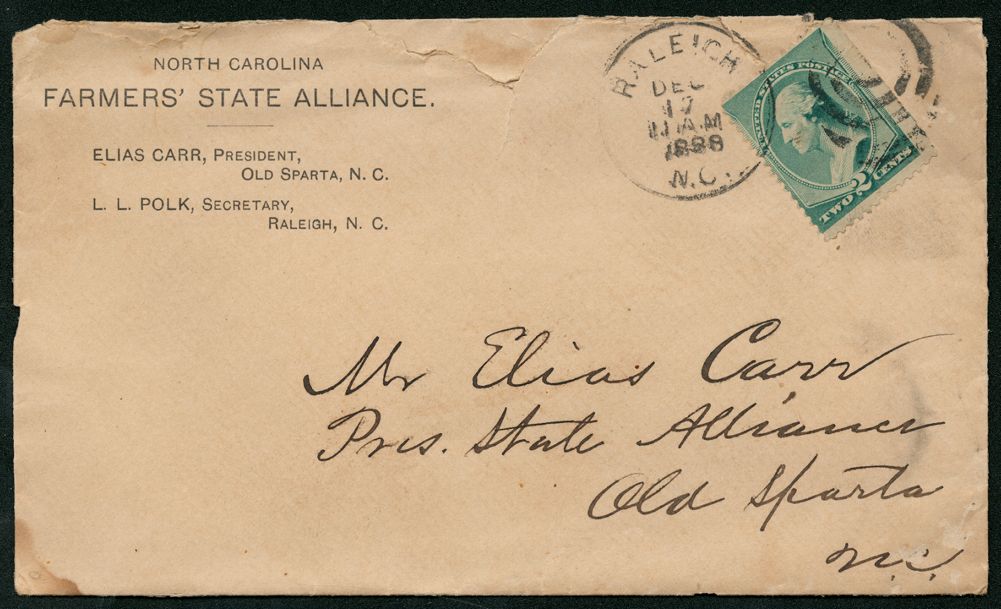 NORTH CAROLINA
FARMERS' STATE ALLIANCE.
ELIAS CARR, PRESIDENT,
OLD SPARTA, N. C.
L. L. POLK, SECRETARY,
RALEIGH, N. C.
RALEIGH
DEC
17
11 AM
1888
N.C.
UNITED STATES POSTAGE
TWO 2 CENTS
Mr Elias Carr
Pres. State Alliance
Old Sparta
N.C.